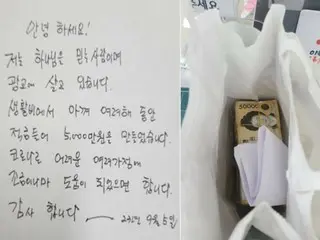 안녕 하세요!
저는 하나님은 믿는 사람이며
광교에 살고 있습니다.
생활비에서 아껴 여러해 동안
적금들어 5,000만원을 만들었습니다.
코로나로 어려운 여러가정에
조금이나마 도움이 되었으면 합니다.
감사 합니다
2021년 9월 5일
50000